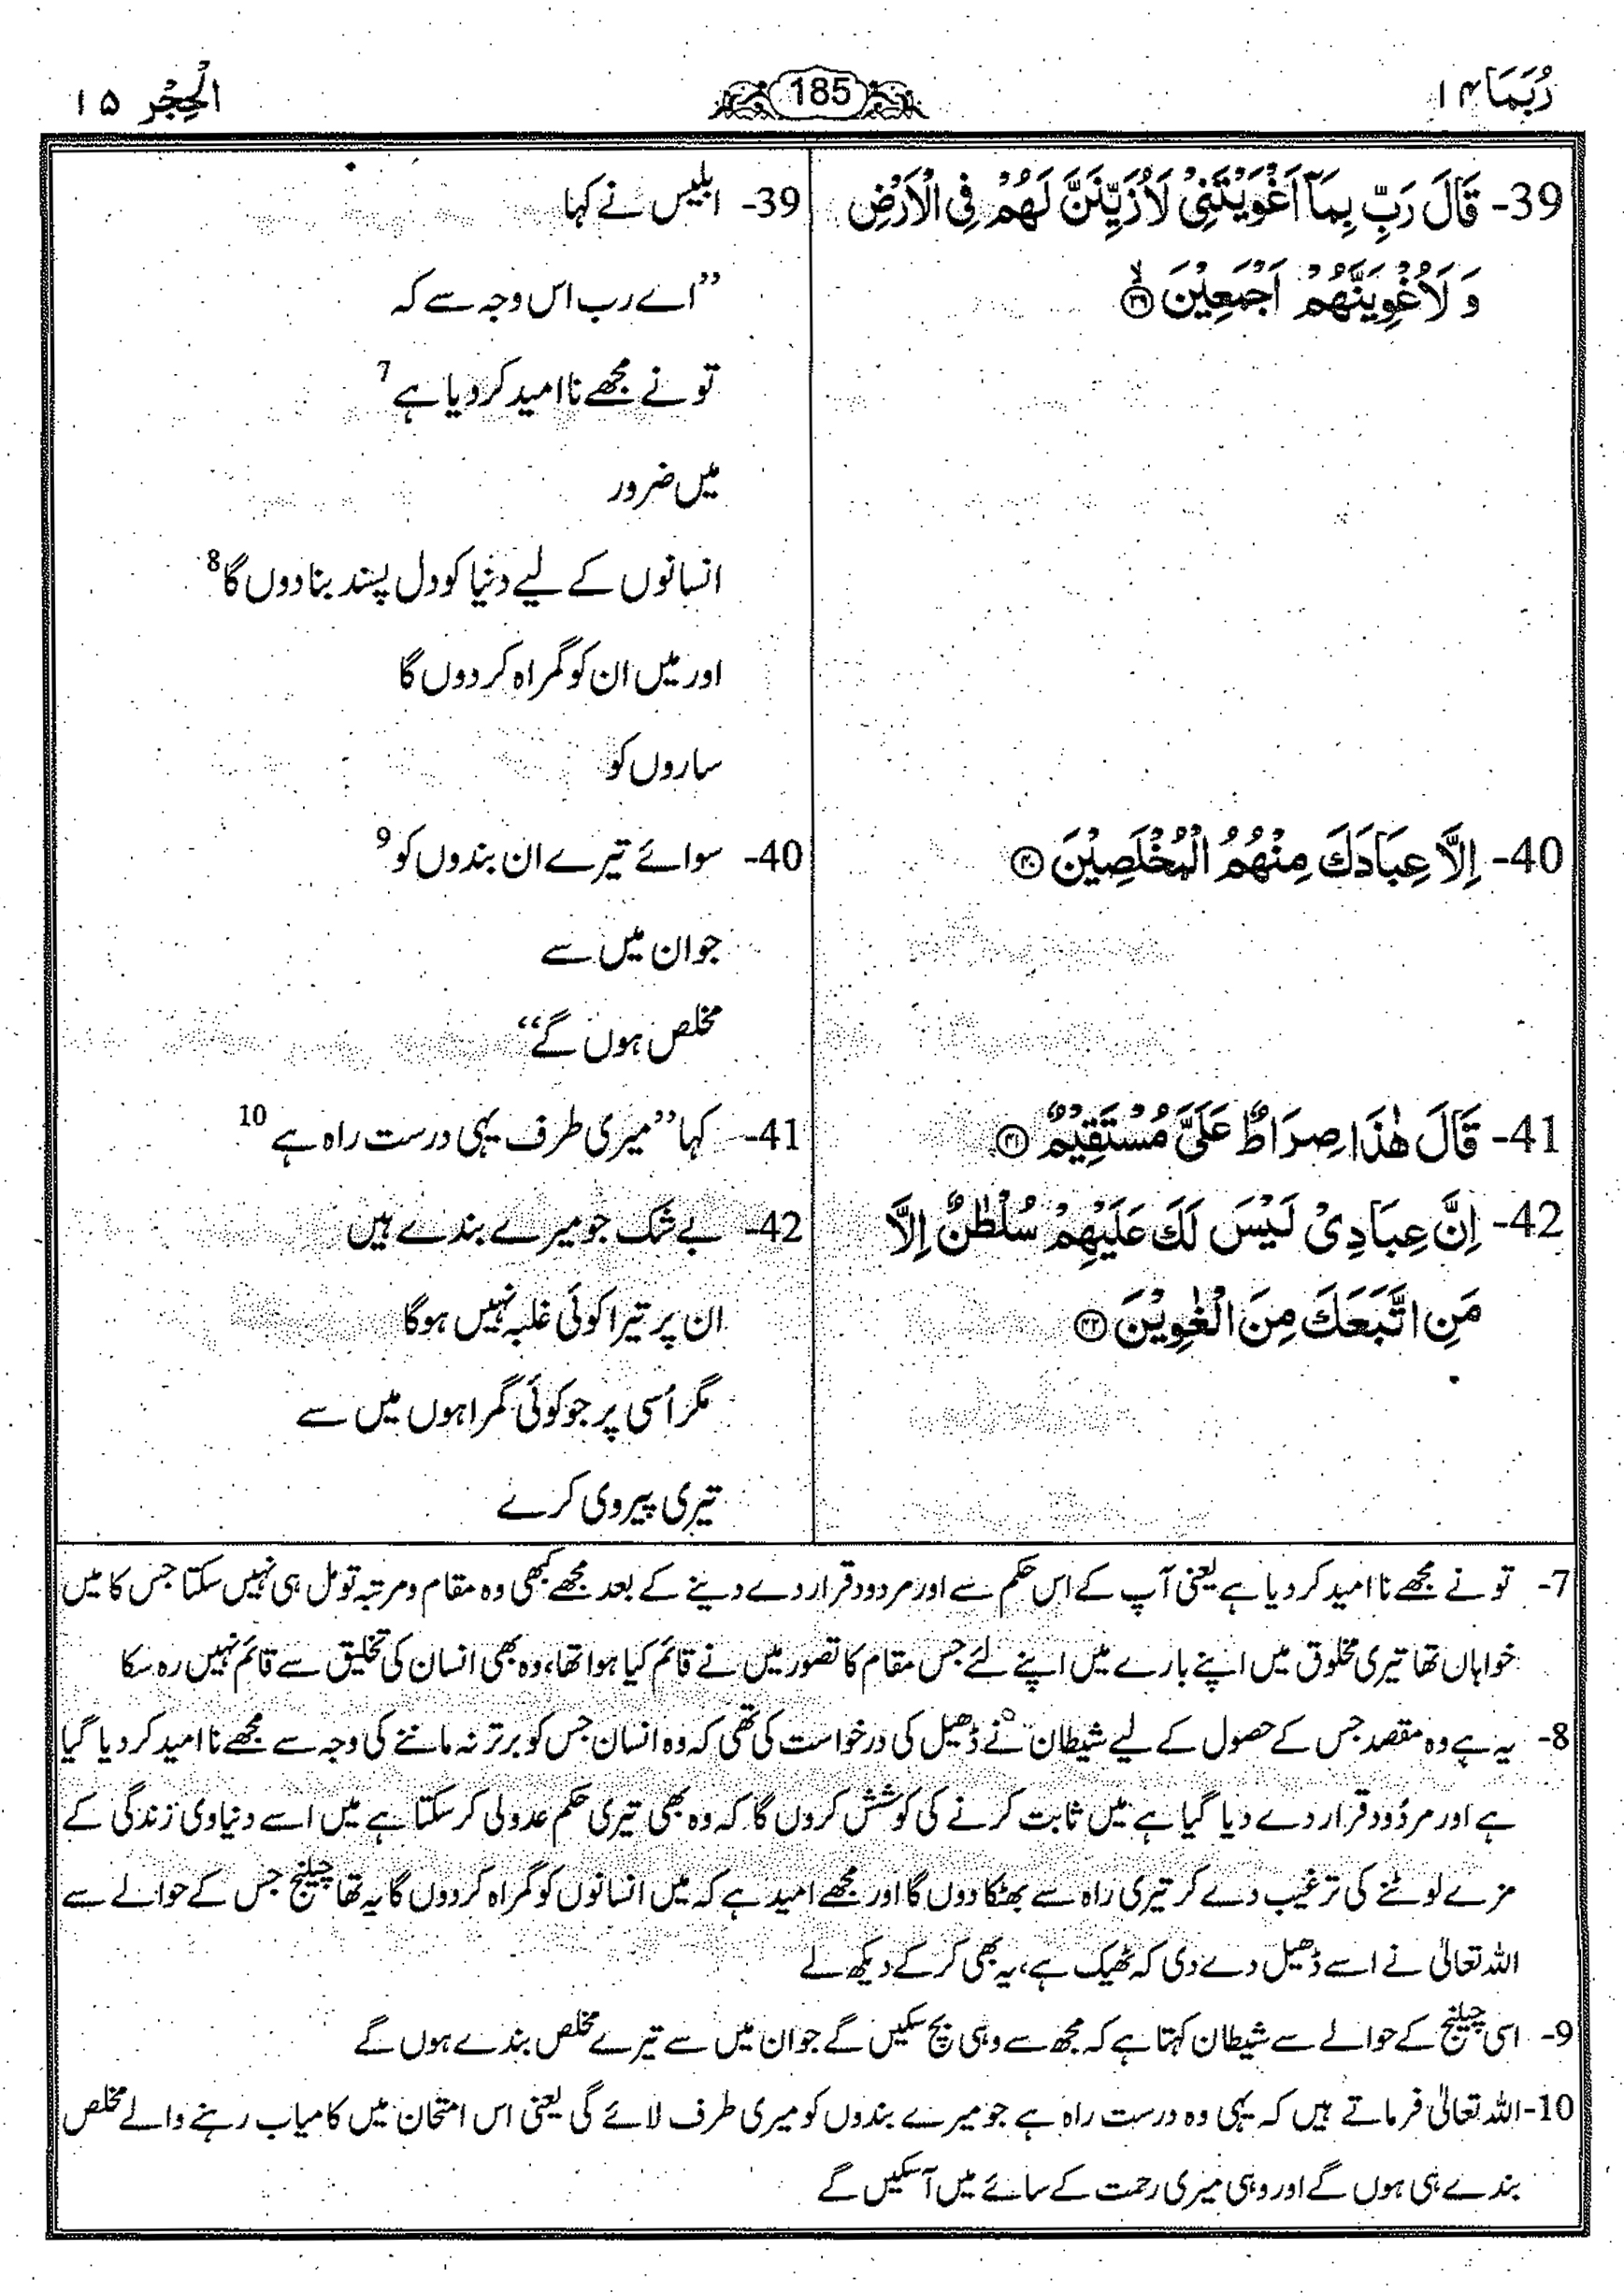 رُبَمَا ۱۴
185
الْحِجْر ۱۵
39- قَالَ رَبِّ بِمَآ اَغْوَيْتَنِىْ لَاُزَيِّنَنَّ لَهُمْ فِى الْاَرْضِ
وَ لَاُغْوِيَنَّهُمْ اَجْمَعِيْنَ ۙ﴿۳۹﴾
40- اِلَّا عِبَادَكَ مِنْهُمُ الْمُخْلَصِيْنَ ﴿۴۰﴾
41- قَالَ هٰذَا صِرَاطٌ عَلَىَّ مُسْتَقِيْمٌ ﴿۴۱﴾
42- اِنَّ عِبَادِىْ لَيْسَ لَكَ عَلَيْهِمْ سُلْطٰنٌ اِلَّا
مَنِ اتَّبَعَكَ مِنَ الْغٰوِيْنَ ﴿۴۲﴾
39- ابلیس نے کہا
”اے رب اس وجہ سے کہ
تو نے مجھے نا امید کر دیا ہے 7
میں ضرور
انسانوں کے لیے دنیا کو دل پسند بنا دوں گا 8
اور میں ان کو گمراہ کر دوں گا
ساروں کو
40- سوائے تیرے ان بندوں کو 9
جو ان میں سے
مخلص ہوں گے“
41- کہا ”میری طرف یہی درست راہ ہے 10
42- بے شک جو میرے بندے ہیں
ان پر تیرا کوئی غلبہ نہیں ہوگا
مگر اُسی پر جو کوئی گمراہوں میں سے
تیری پیروی کرے
7- تو نے مجھے نا امید کر دیا ہے یعنی آپ کے اس حکم سے اور مردود قرار دے دینے کے بعد مجھے کبھی وہ مقام و مرتبہ تو مل ہی نہیں سکتا جس کا میں
خواہاں تھا تیری مخلوق میں اپنے بارے میں اپنے لئے جس مقام کا تصور میں نے قائم کیا ہوا تھا، وہ بھی انسان کی تخلیق سے قائم نہیں رہ سکا
8- یہ ہے وہ مقصد جس کے حصول کے لیے شیطان نے ڈھیل کی درخواست کی تھی کہ وہ انسان جس کو برتر نہ ماننے کی وجہ سے مجھے نا امید کر دیا گیا
ہے اور مردُود قرار دے دیا گیا ہے میں ثابت کرنے کی کوشش کروں گا کہ وہ بھی تیری حکم عدولی کر سکتا ہے میں اسے دنیاوی زندگی کے
مزے لوٹنے کی ترغیب دے کر تیری راہ سے بھٹکا دوں گا اور مجھے امید ہے کہ میں انسانوں کو گمراہ کر دوں گا یہ تھا چیلنج جس کے حوالے سے
اللہ تعالیٰ نے اسے ڈھیل دے دی کہ ٹھیک ہے، یہ بھی کر کے دیکھ لے
9- اسی چیلنج کے حوالے سے شیطان کہتا ہے کہ مجھ سے وہی بچ سکیں گے جو ان میں سے تیرے مخلص بندے ہوں گے
10- اللہ تعالیٰ فرماتے ہیں کہ یہی وہ درست راہ ہے جو میرے بندوں کو میری طرف لائے گی یعنی اس امتحان میں کامیاب رہنے والے مخلص
بندے ہی ہوں گے اور وہی میری رحمت کے سائے میں آ سکیں گے